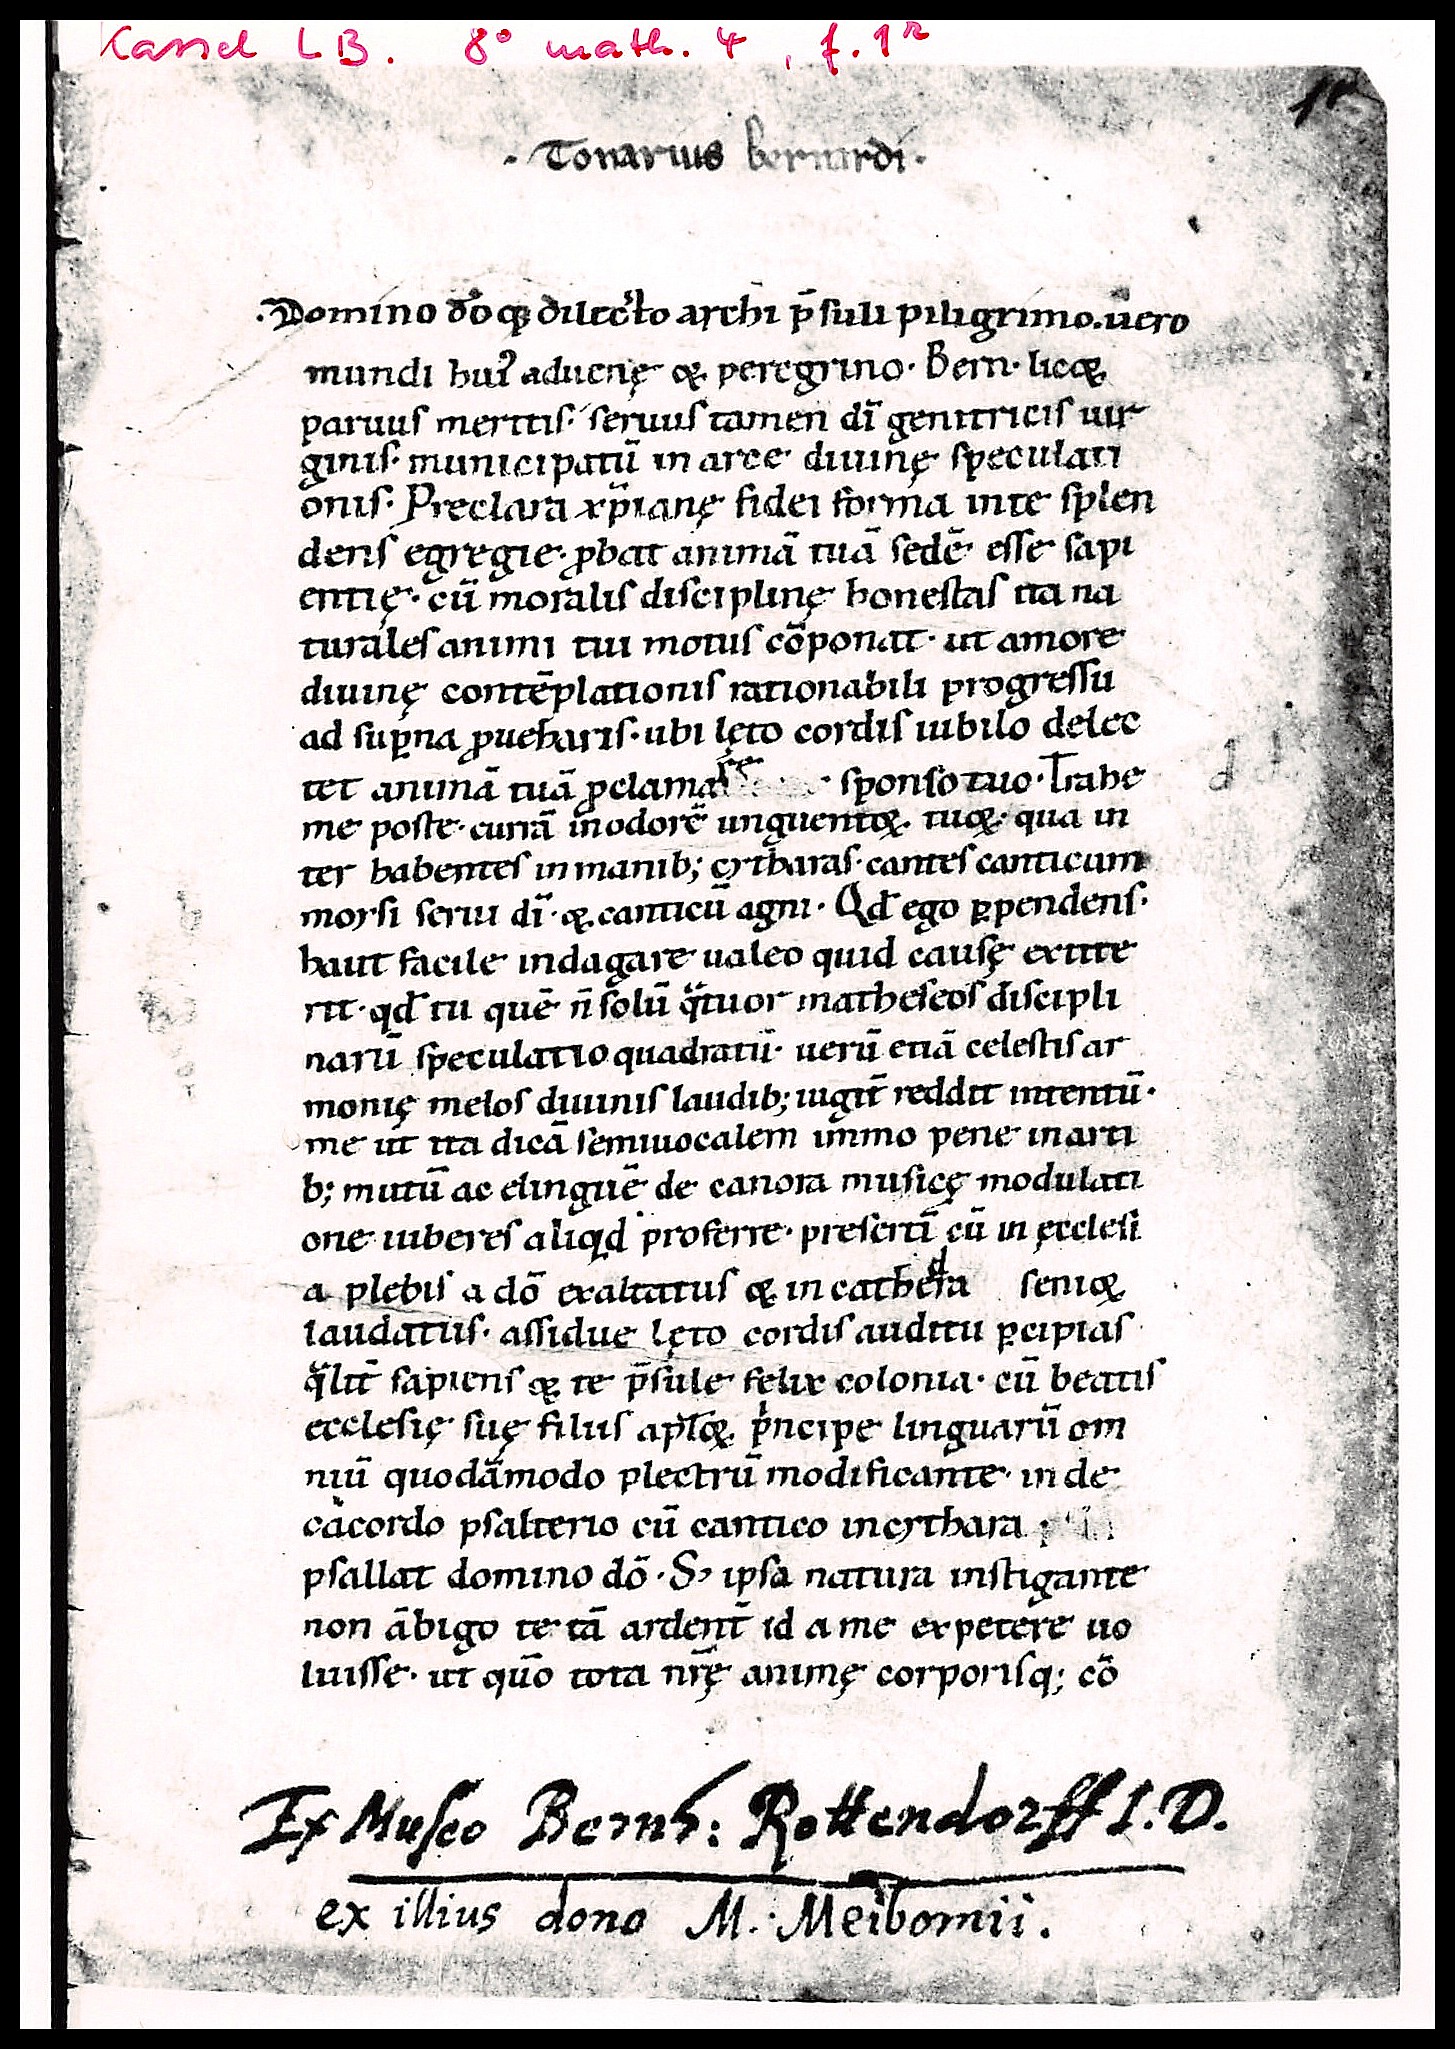 Kassel LB. 8° math. 4, f. 1r
1r
· Tonarius bernardi ·
Domino dõ ꝙ dilecto archi p̄suli piligrimo. uero
mundi huiꝰ aduenę & peregrino· Bern· lic&
paruus meritis· seruus tamen dī genitricis uir
ginis· municipatū in arce diuinę speculati
onis· Preclara xp̄ianę fidei forma in te splen
dens egregie· ꝓbat animā tuā sedē esse sapi
entię· cū moralis disciplinę honestas ita na
turales animi tui motus cōponat· ut amore
diuinę contēplationis rationabili progressu
ad suꝑna ꝓueharis· ubi lęto cordis iubilo delec
tet animā tuā ꝓclamasse sponso tuo· Trahe
me poste· currā in odorē unguentoꝝ tuoꝝ· qua in
ter habentes in manib; cytharas· cantes canticum
moysi serui dī· & canticū agni· Qd̄ ego ꝑpendens·
haut facile indagare ualeo quid causę extite
rit· qd̄ tu quē n̄ solū qͣtuor matheseos discipli
narū speculatio quadratū· uerū etiā celestis ar
monię melos diuinis laudib; iugit̄ reddit intentū·
me ut ita dicā semiuocalem immo pene in arti
b; mutū ac elinguē de canora musicę modulati
one iuberes aliqd proferre· presertī cū in ęcclesi
a plebis a dō exaltatus & in cathedra senioꝝ
laudatus· assidue lęto cordis auditu ꝑcipias
qͣlit̄ sapiens & te p̄sule felix colonia· cū beatis
ecclesię suę filiis apl̄oꝝ pͥncipe linguarū om
niū quodāmodo plectrū modificante· in de
cacordo psalterio cū cantico in cythara
psallat domino dō· Sꝫ ipsa natura instigante
non ābigo te tā ardent̄ id a me expetere uo
luisse· ut qūo tota nr̄ę animę corporisq; cō
Ex Museo Bernh: Rottendorff I. D.
ex illius dono M. Meibomii.